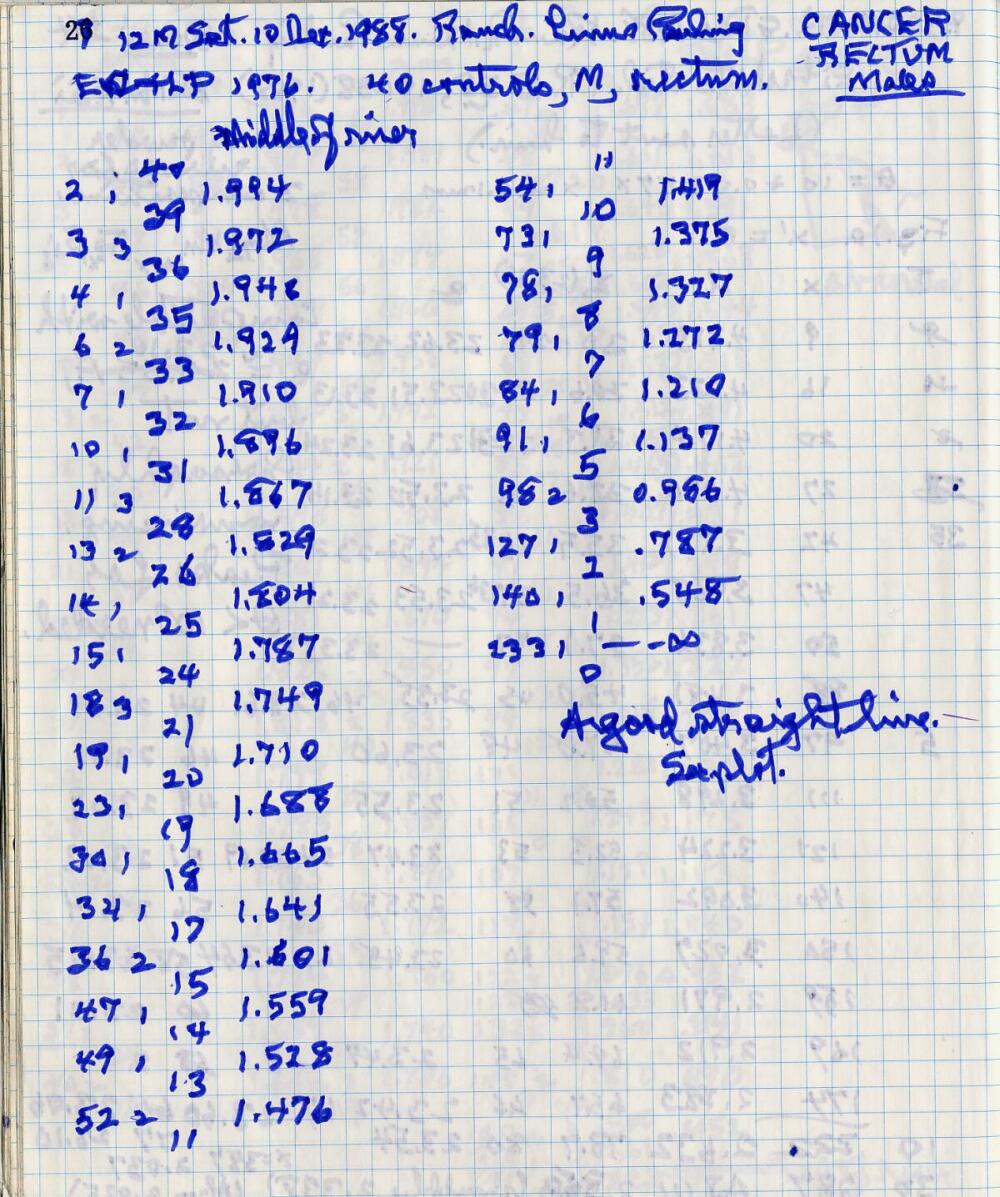 12M Sat. 10 Dec. 1988. Ranch. Linus Pauling
CANCER
RECTUM
Males
EC+LP 1976. 40 controls, M, rectum.
Middle of riser
40
2 1 1.994
39
3 3 1.972
36
4 1 1.948
35
6 2 1.924
33
7 1 1.910
32
10 1 1.896
31
11 3 1.867
28
13 2 1.829
26
14 1 1.804
25
15 1 1.787
24
18 3 1.749
21
19 1 1.710
20
23 1 1.688
19
30 1 1.665
18
34 1 1.641
17
36 2 1.601
15
47 1 1.559
14
49 1 1.528
13
52 2 1.476
11
11
54 1 1.419
10
73 1 1.375
9
78 1 1.327
8
79 1 1.272
7
84 1 1.210
6
91 1 1.137
5
98 2 0.986
3
127 1 .787
2
140 1 .548
1
233 1 — -∞
0
A good straight line.
See plot.